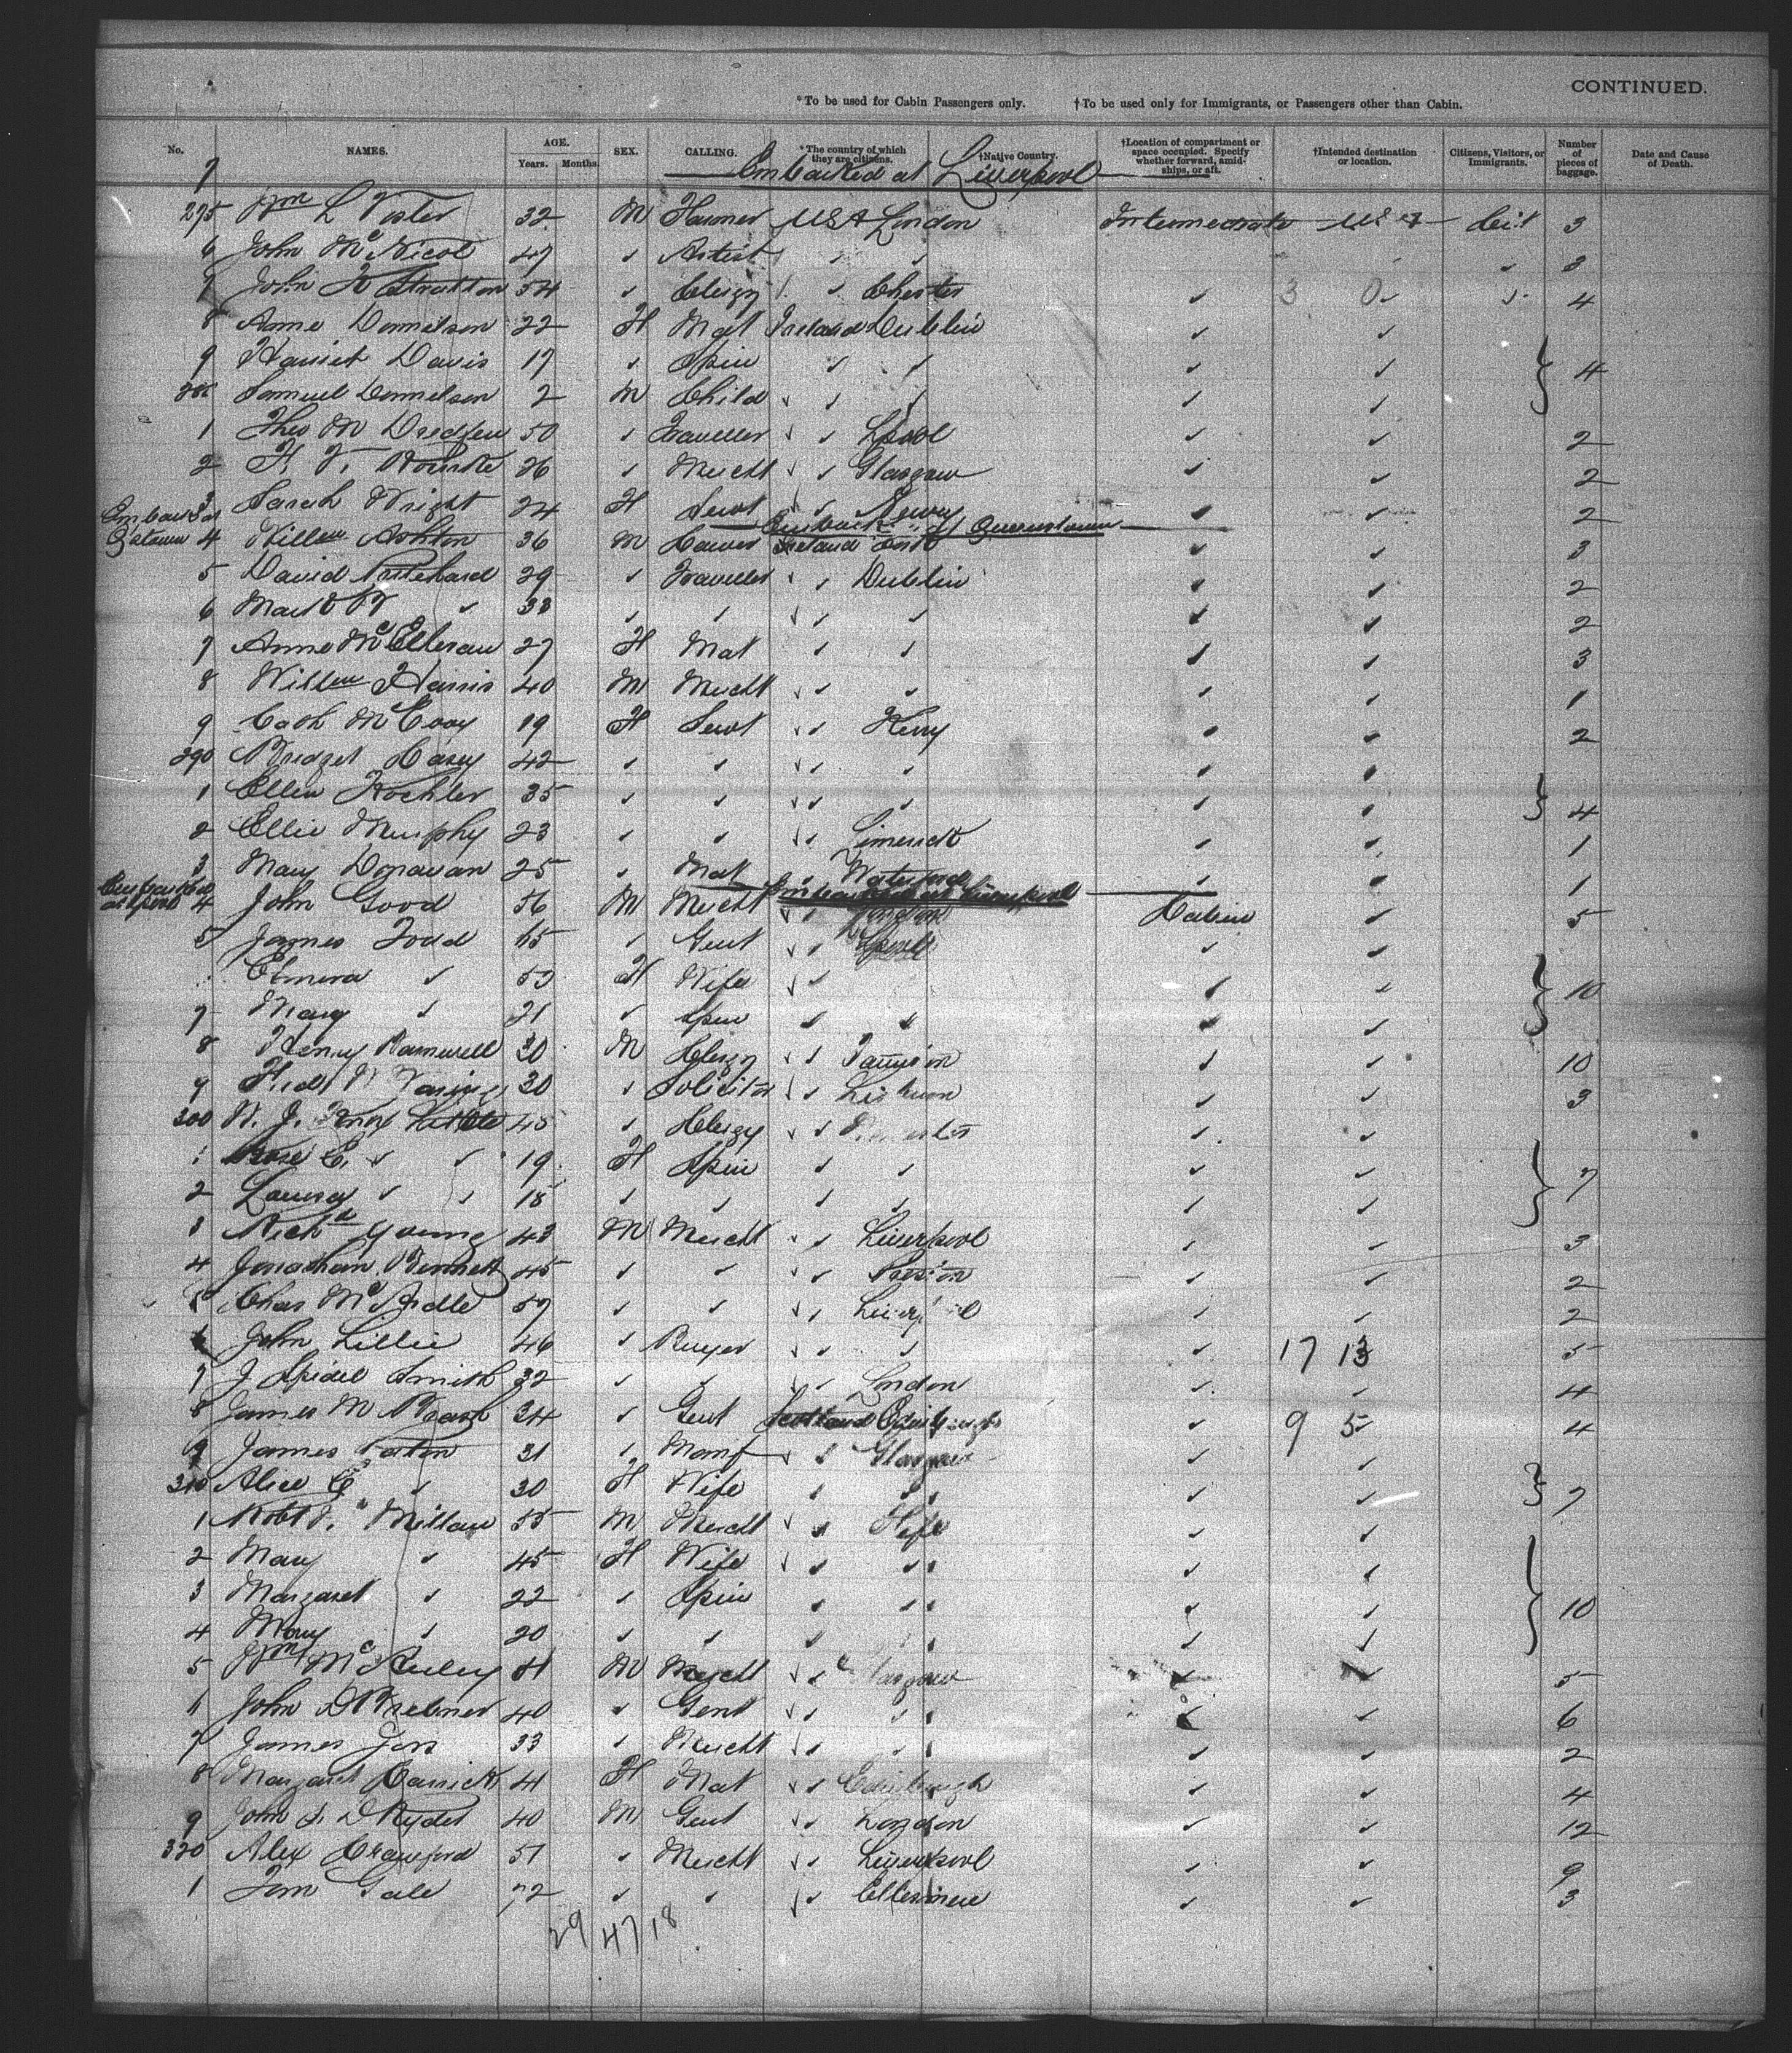 CONTINUED.
*To be used for Cabin Passengers only. †To be used only for Immigrants, or Passengers other than Cabin.
No. NAMES. AGE. Years. Months. SEX. CALLING. *The country of which they are citizens. †Native Country. †Location of compartment or space occupied. Specify whether forward, amidships, or aft. †Intended destination or location. Citizens, Visitors, or Immigrants. Number of pieces of baggage. Date and Cause of Death.
7 Embarked at Liverpool
275 Wm L 32 M Farmer USA London Intermediate USA Cit 3
6 John McNicol 47 ✓ Artist ✓ ✓ ✓ 3
7 John H Stratton 54 ✓ Clergy ✓ Chester ✓ 3 0 ✓ 4
8 Anne Donnelson 22 F Mat Ireland Dublin ✓ ✓
9 Harriet Davis 17 ✓ Spin ✓ ✓ ✓ ✓ } 4
280 Samuel Donnelson 2 M Child ✓ ✓ ✓ ✓ ✓
1 Theo M 50 ✓ Traveller ✓ ✓ L'pool ✓ ✓ 2
2 F. V. Rourke 26 ✓ Mercht ✓ ✓ Glasgow ✓ ✓ 2
3 Sarah Wright 24 F Servt ✓ ✓ Newry ✓ ✓ 2
Embarked at Qstown Embarked at Queenstown
4 Willm Ashton 36 M Ireland Cork ✓ ✓ 3
5 David Pritchard 29 ✓ Traveller ✓ ✓ Dublin ✓ ✓ 2
6 ✓ 33 ✓ ✓ ✓ ✓ ✓ ✓ ✓ 2
7 Anne McElheran 27 F Mat ✓ ✓ ✓ ✓ 3
8 Willm Harris 40 M Mercht ✓ ✓ ✓ ✓ ✓ 1
9 Cath McEvoy 19 F Servt ✓ ✓ Kerry ✓ ✓ 2
290 Bridget Casey 42 ✓ ✓ ✓ ✓ ✓ ✓ ✓
1 Ellen Koehler 35 ✓ ✓ ✓ ✓ ✓ ✓ ✓ } 4
2 Ellie Murphy 23 ✓ ✓ ✓ ✓ Limerick ✓ ✓ 1
3 Mary Donavan 25 ✓ Mat ✓ ✓ Waterford ✓ ✓ 1
Embarked at Lpool Embarked at Liverpool
4 John Good 56 M Mercht ✓ ✓ London Cabin ✓ 5
5 James Todd 65 ✓ Gent ✓ ✓ ✓ ✓
Elmira ✓ 53 F Wife ✓ ✓ ✓ ✓ } 10
7 Mary ✓ 21 ✓ Spin ✓ ✓ ✓ ✓
8 Henry Ramwell 30 M Clergy ✓ ✓ ✓ ✓ 10
9 Fredk 30 ✓ Solicitor ✓ ✓ ✓ ✓ 3
300 W. J. Knox Little 45 ✓ Clergy ✓ ✓ ✓ ✓
1 Rose E. ✓ ✓ 19 F Spin ✓ ✓ ✓ ✓ } 7
2 Laura ✓ ✓ 18 ✓ ✓ ✓ ✓ ✓ ✓
3 Richd Young 43 M Mercht ✓ ✓ Liverpool ✓ ✓ 3
4 Jonathan Bennett 45 ✓ ✓ ✓ ✓ Preston ✓ ✓ 2
5 Chas McArdle 57 ✓ ✓ ✓ ✓ Liverpool ✓ ✓ 2
6 John Lillie 46 ✓ Buyer ✓ ✓ ✓ ✓ 17 13 5
7 J Spidel Smith 32 ✓ ✓ ✓ ✓ London ✓ ✓ 4
8 James M 34 ✓ Gent Scotland Edinburgh ✓ 9 5 4
9 James Paton 31 ✓ Manf ✓ ✓ Glasgow ✓ ✓
310 Alice E ✓ 30 F Wife ✓ ✓ ✓ ✓ } 7
1 Robt 55 M Mercht ✓ ✓ Fife ✓ ✓
2 Mary ✓ 45 F Wife ✓ ✓ ✓ ✓ ✓
3 Margaret ✓ 22 ✓ Spin ✓ ✓ ✓ ✓ } 10
4 Mary ✓ 20 ✓ ✓ ✓ ✓ ✓ ✓
5 Wm M M Mercht ✓ ✓ Glasgow ✓ ✓ 5
6 John D Brebner 40 ✓ Gent ✓ ✓ ✓ ✓ ✓ 6
7 James 33 ✓ Mercht ✓ ✓ ✓ ✓ ✓ 2
8 Margaret Carrick 41 F Mat ✓ ✓ Edinburgh ✓ ✓ 4
9 John 40 M Gent ✓ ✓ London ✓ ✓ 12
320 Alex Crawford 51 ✓ Mercht ✓ ✓ Liverpool ✓ ✓ 9
1 Tom Gale 22 ✓ ✓ ✓ ✓ Ellesmere ✓ ✓ 3
29 47 18